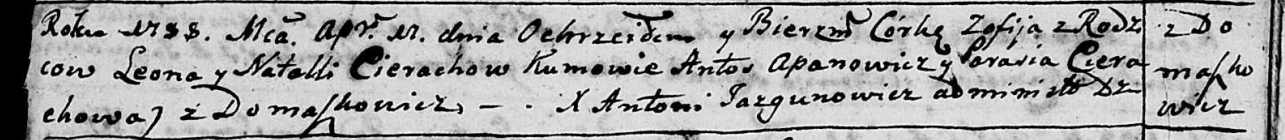 Roku 1788. Mca. Apr. 17. dnia Ochrzciłem y Bierzm Córkę Zofiją z Rodzi
cow Leona y Natalli Cierachow Kumowie Antos Apanowicz y Parasia Ciera
chowa z Domaszkowicz, – . X Antoni Jazgunowicz administ Dz
z Do
maszko
wicz